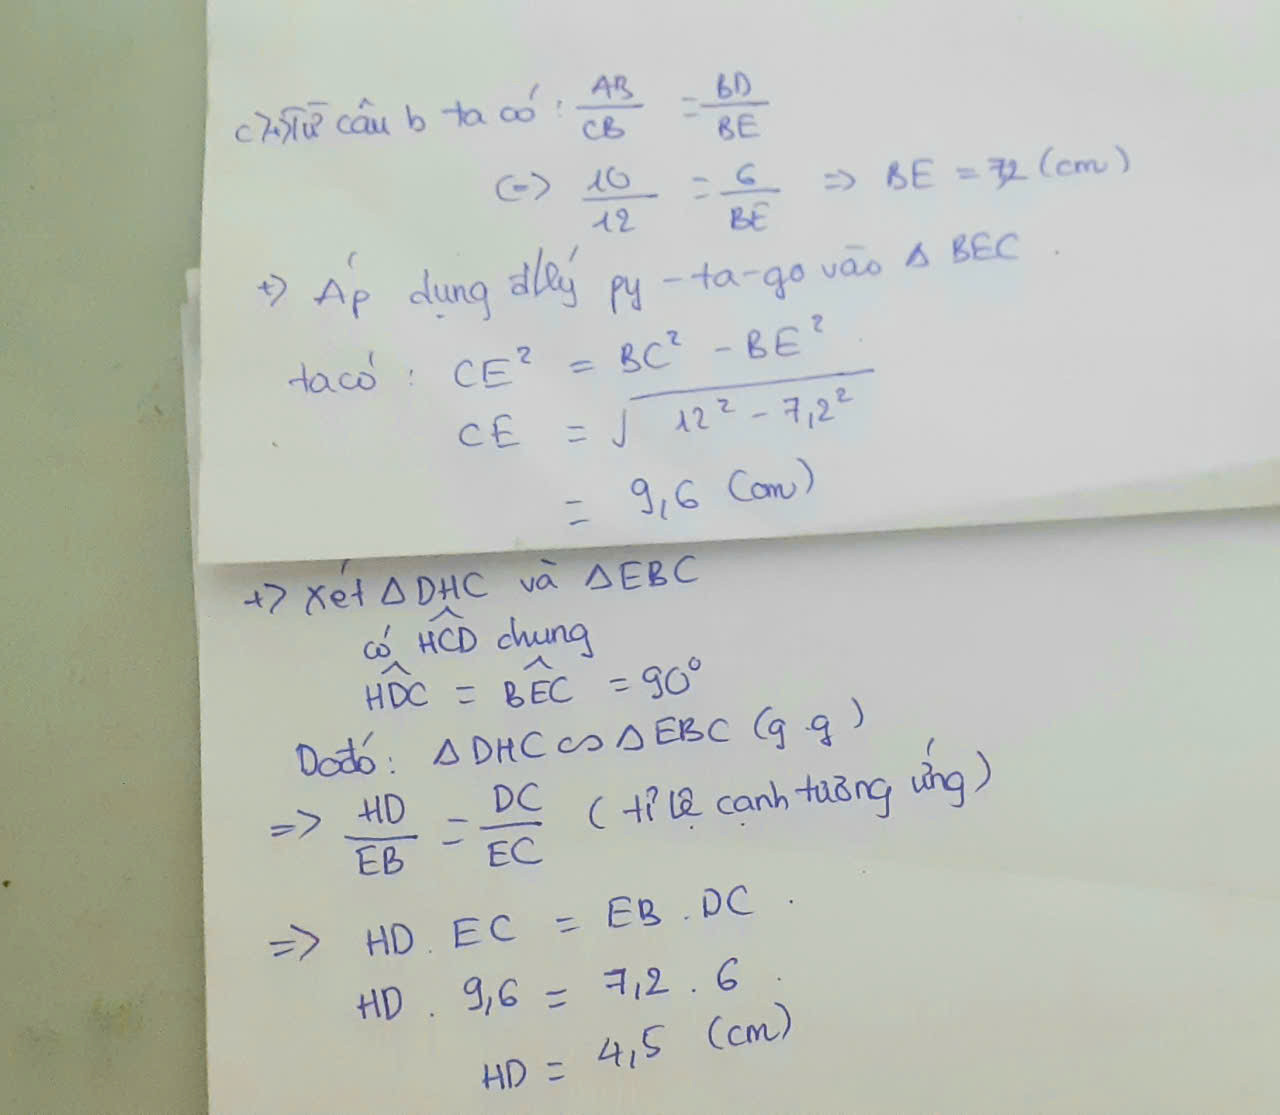 c) +) Từ câu b ta có: AB/CB = BD/BE
<=> 10/12 = 6/BE => BE = 7,2 (cm)
+) Áp dụng đlý py-ta-go vào Δ BEC.
ta có: CE² = BC² - BE²
CE = √(12² - 7,2²)
= 9,6 (cm)
+) Xét ΔDHC và ΔEBC
có HĈD chung
HD̂C = BÊC = 90°
Dođó: ΔDHC ∽ ΔEBC (g.g)
=> HD/EB = DC/EC (tỉ lệ cạnh tương ứng)
=> HD . EC = EB . DC .
HD . 9,6 = 7,2 . 6 .
HD = 4,5 (cm)